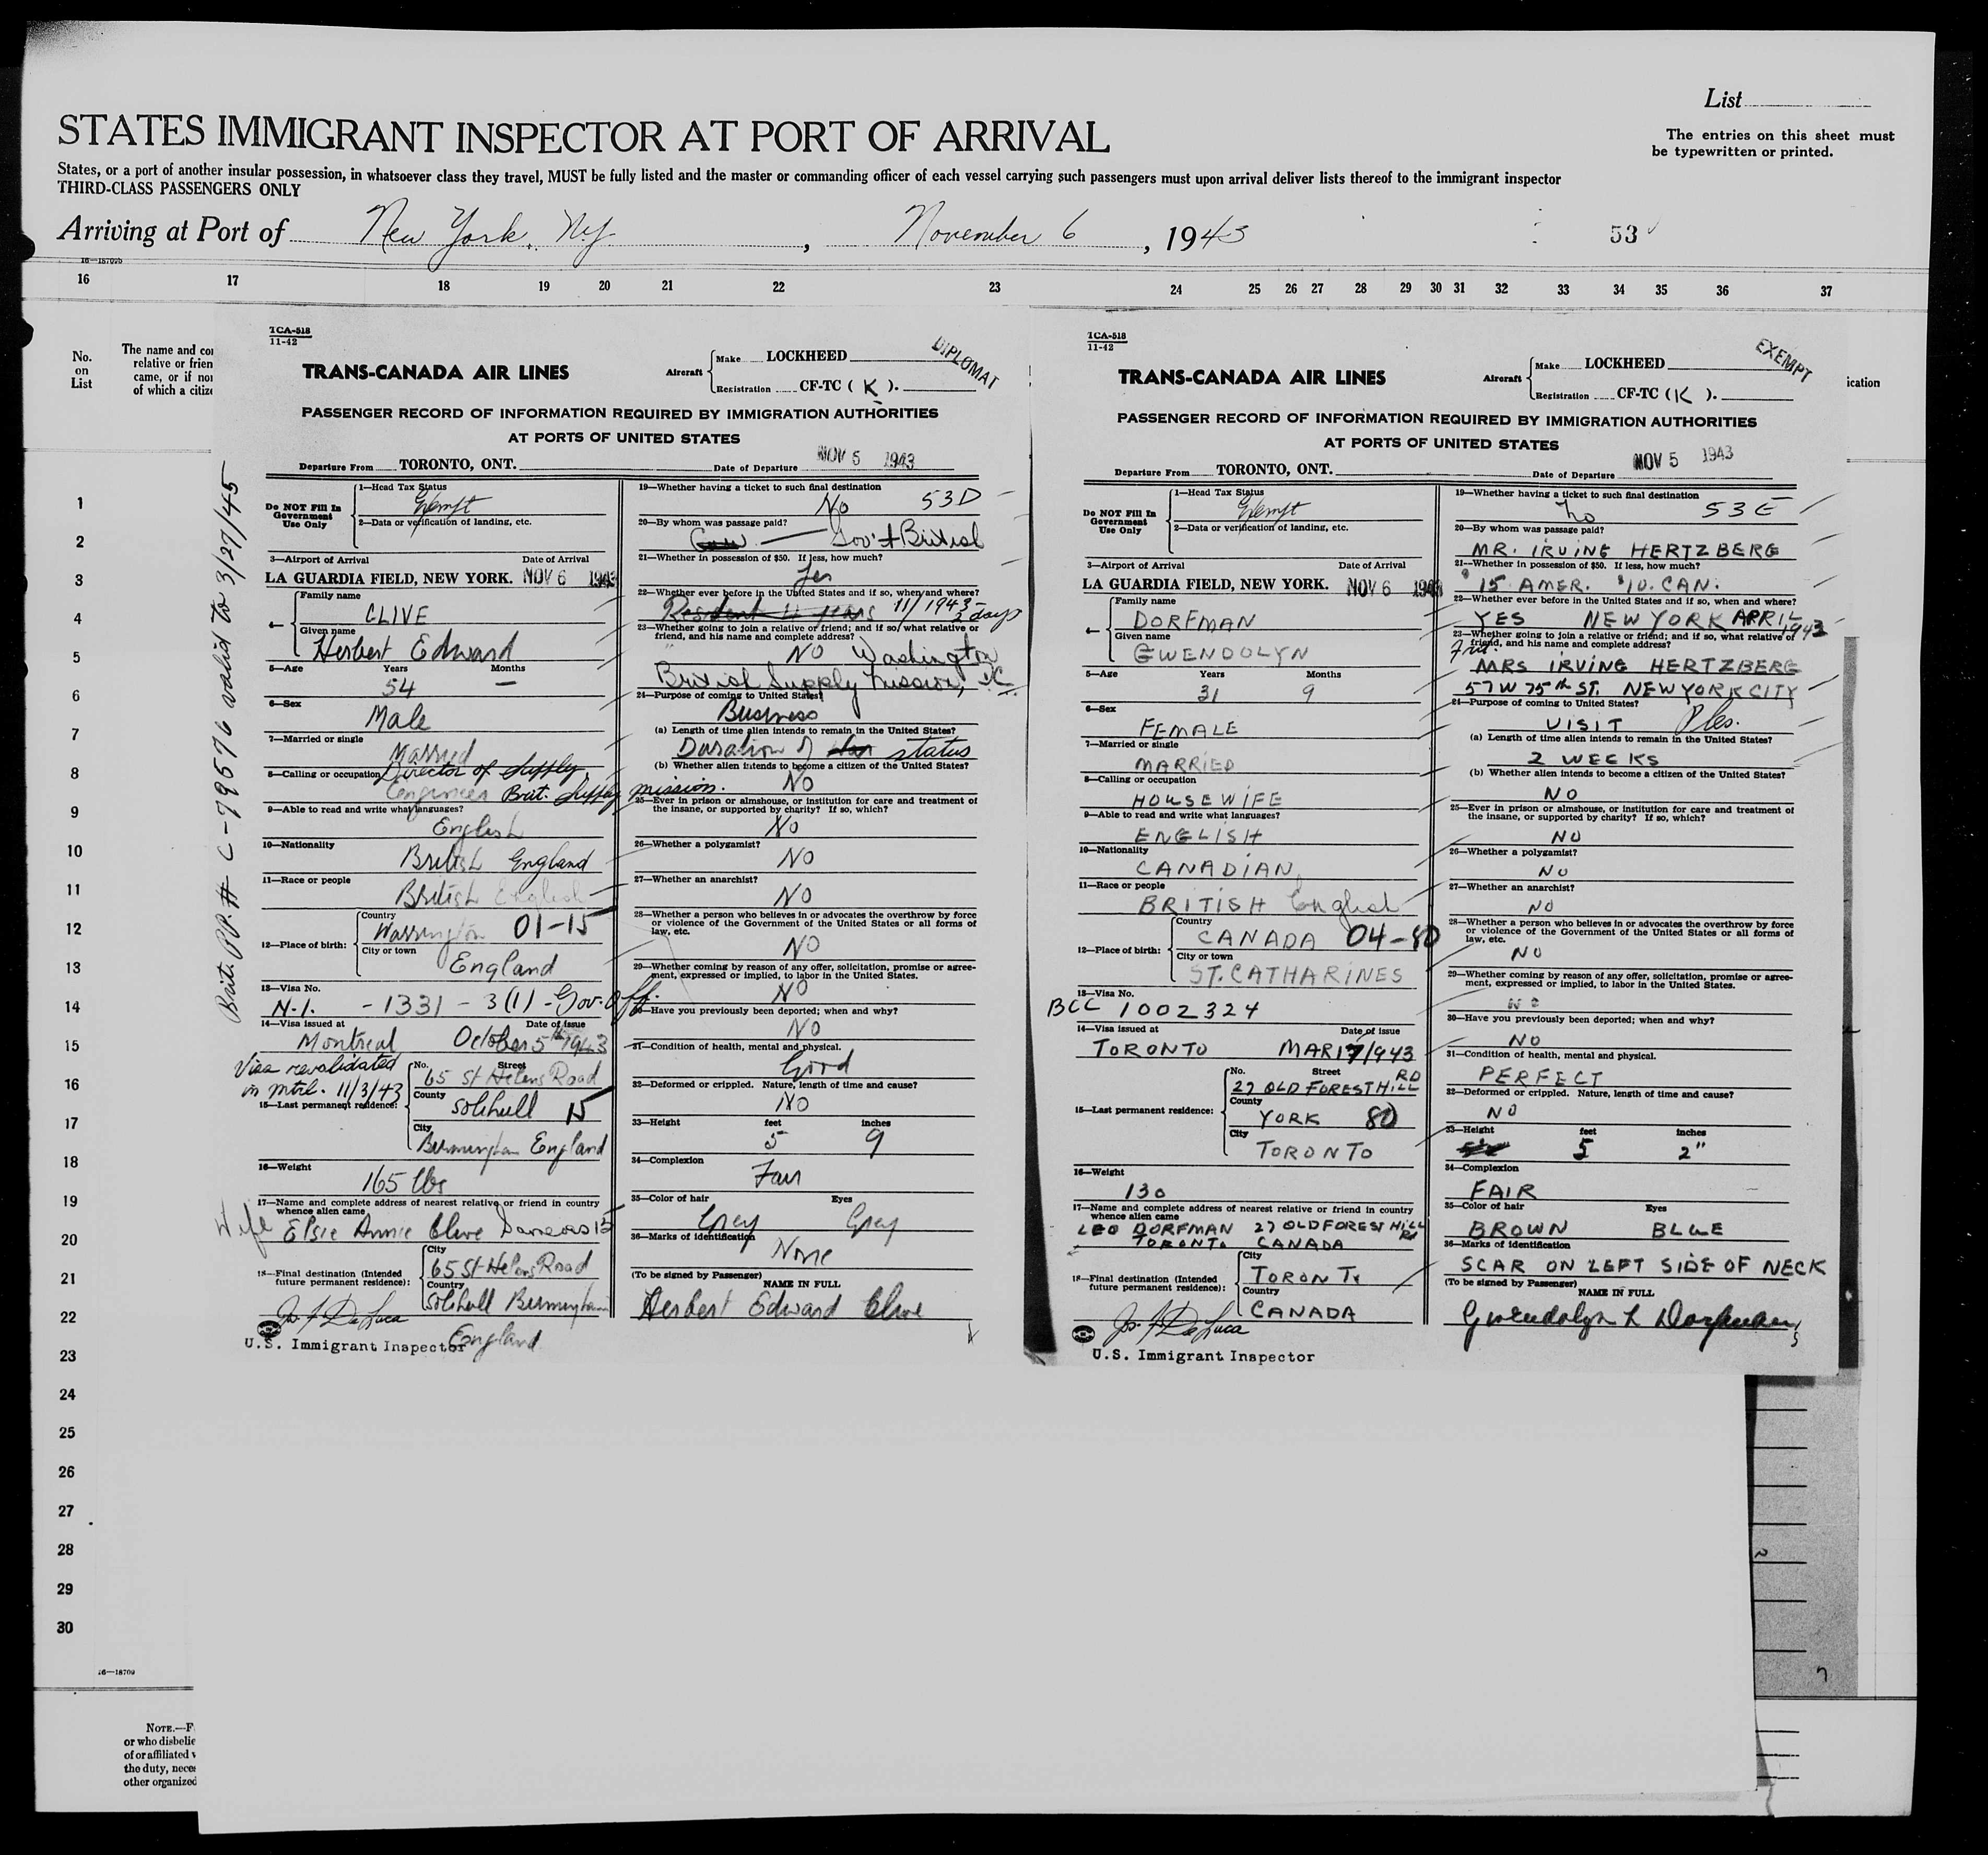 List
STATES IMMIGRANT INSPECTOR AT PORT OF ARRIVAL
The entries on this sheet must
be typewritten or printed.
States, or a port of another insular possession, in whatsoever class they travel, MUST be fully listed and the master or commanding officer of each vessel carrying such passengers must upon arrival deliver lists thereof to the immigrant inspector
THIRD-CLASS PASSENGERS ONLY
Arriving at Port of New York, N.Y. , November 6 , 1943 53
16—18709b
16 17 18 19 20 21 22 23 24 25 26 27 28 29 30 31 32 33 34 35 36 37
No.
on
List
The name and co
relative or frien
came, or if no
of which a citize
ication
1
2
3
4
5
6
7
8
9
10
11
12
13
14
15
16
17
18
19
20
21
22
23
24
25
26
27
28
29
30
16—18709
NOTE.—F
or who disbelie
of or affiliated
the duty, nece
other organized
Brit. PP. # C-79576 valid to 3/27/45
TCA-518
11-42
TRANS-CANADA AIR LINES
Aircraft
Make LOCKHEED
Registration CF-TC ( K ).
DIPLOMAT
PASSENGER RECORD OF INFORMATION REQUIRED BY IMMIGRATION AUTHORITIES
AT PORTS OF UNITED STATES
Departure From TORONTO, ONT. Date of Departure NOV 5 1943
Do NOT Fill In
Government
Use Only
1—Head Tax Status
Exempt
2—Data or verification of landing, etc.
3—Airport of Arrival Date of Arrival
LA GUARDIA FIELD, NEW YORK. NOV 6 1943
4—
Family name
CLIVE
Given name
Herbert Edward
5—Age Years Months
54 —
6—Sex
Male
7—Married or single
Married
8—Calling or occupation Director of Supply
Engineer Brit. Supply mission.
9—Able to read and write what languages?
English
10—Nationality
British England
11—Race or people
British English
12—Place of birth:
Country
Warrington 01-15
City or town
England
13—Visa No.
N.I. - 1331 - 3(1) - Gov. off.
14—Visa issued at Date of issue
Montreal October 5th 1943
Visa revalidated
in Mtrl. 11/3/43
15—Last permanent residence:
No. Street
65 St Helens Road
County
Solihull 15
City
Birmingham England
16—Weight
165 lbs
17—Name and complete address of nearest relative or friend in country
whence alien came
Wife Elsie Annie Clive 15
18—Final destination (Intended
future permanent residence):
City
65 St Helens Road
Country
Solihull Birmingham
England
Jos. F. DeLuca
U.S. Immigrant Inspector
19—Whether having a ticket to such final destination
No 53D
20—By whom was passage paid?
Gov't British
21—Whether in possession of $50. If less, how much?
Yes
22—Whether ever before in the United States and if so, when and where?
Resident 4 years 11/1943 2 days
23—Whether going to join a relative or friend; and if so, what relative or
friend, and his name and complete address?
NO Washington
British Supply Mission, D.C.
24—Purpose of coming to United States?
Business
(a) Length of time alien intends to remain in the United States?
Duration of status
(b) Whether alien intends to become a citizen of the United States?
NO
25—Ever in prison or almshouse, or institution for care and treatment of
the insane, or supported by charity? If so, which?
No
26—Whether a polygamist?
NO
27—Whether an anarchist?
NO
28—Whether a person who believes in or advocates the overthrow by force
or violence of the Government of the United States or all forms of
law, etc.
NO
29—Whether coming by reason of any offer, solicitation, promise or agree-
ment, expressed or implied, to labor in the United States.
NO
30—Have you previously been deported; when and why?
NO
31—Condition of health, mental and physical.
Good
32—Deformed or crippled. Nature, length of time and cause?
NO
33—Height feet inches
5 9
34—Complexion
Fair
35—Color of hair Eyes
Grey Grey
36—Marks of identification
None
(To be signed by Passenger) NAME IN FULL
Herbert Edward Clive
TCA-518
11-42
TRANS-CANADA AIR LINES
Aircraft
Make LOCKHEED
Registration CF-TC ( K ).
EXEMPT
PASSENGER RECORD OF INFORMATION REQUIRED BY IMMIGRATION AUTHORITIES
AT PORTS OF UNITED STATES
Departure From TORONTO, ONT. Date of Departure NOV 5 1943
Do NOT Fill In
Government
Use Only
1—Head Tax Status
Exempt
2—Data or verification of landing, etc.
3—Airport of Arrival Date of Arrival
LA GUARDIA FIELD, NEW YORK. NOV 6 1943
4—
Family name
DORFMAN
Given name
GWENDOLYN
5—Age Years Months
31 9
6—Sex
FEMALE
7—Married or single
MARRIED
8—Calling or occupation
HOUSEWIFE
9—Able to read and write what languages?
ENGLISH
10—Nationality
CANADIAN
11—Race or people
BRITISH English
12—Place of birth:
Country
CANADA 04-80
City or town
ST. CATHARINES
13—Visa No.
BCC 1002324
14—Visa issued at Date of issue
TORONTO MAR 17/943
15—Last permanent residence:
No. Street
27 OLD FOREST HILL RD
County
YORK 80
City
TORONTO
16—Weight
130
17—Name and complete address of nearest relative or friend in country
whence alien came
LEO DORFMAN 27 OLD FOREST HILL Rd
TORONTO CANADA
18—Final destination (Intended
future permanent residence):
City
TORONTO
Country
CANADA
Jos. F. DeLuca
U.S. Immigrant Inspector
19—Whether having a ticket to such final destination
No 53E
20—By whom was passage paid?
MR. IRVING HERTZBERG
21—Whether in possession of $50. If less, how much?
$15 AMER. $10. CAN.
22—Whether ever before in the United States and if so, when and where?
YES NEW YORK APRIL 1943
23—Whether going to join a relative or friend; and if so, what relative of
friend, and his name and complete address?
Frd.
MRS IRVING HERTZBERG
57 W 75th ST. NEW YORK CITY
24—Purpose of coming to United States?
VISIT Ples.
(a) Length of time alien intends to remain in the United States?
2 WEEKS
(b) Whether alien intends to become a citizen of the United States?
NO
25—Ever in prison or almshouse, or institution for care and treatment of
the insane, or supported by charity? If so, which?
NO
26—Whether a polygamist?
NO
27—Whether an anarchist?
NO
28—Whether a person who believes in or advocates the overthrow by force
or violence of the Government of the United States or all forms of
law, etc.
NO
29—Whether coming by reason of any offer, solicitation, promise or agree-
ment, expressed or implied, to labor in the United States.
NO
30—Have you previously been deported; when and why?
NO
31—Condition of health, mental and physical.
PERFECT
32—Deformed or crippled. Nature, length of time and cause?
NO
33—Height feet inches
5 2"
34—Complexion
FAIR
35—Color of hair Eyes
BROWN BLUE
36—Marks of identification
SCAR ON LEFT SIDE OF NECK
(To be signed by Passenger) NAME IN FULL
Gwendolyn L Dorfman